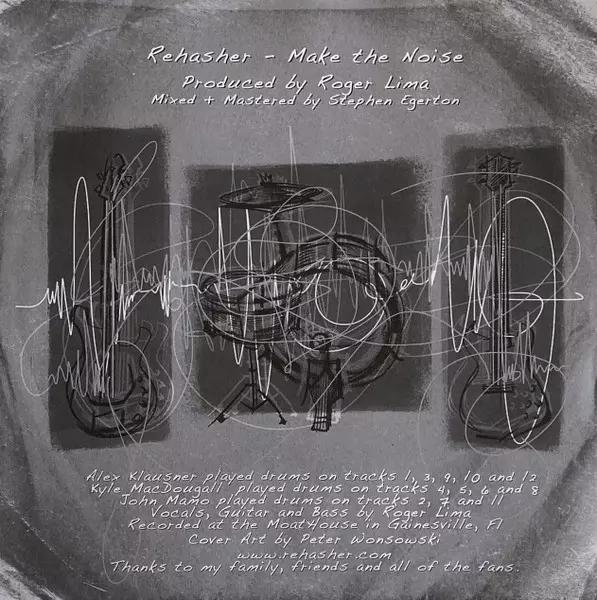 Rehasher - Make the Noise
Produced by Roger Lima
Mixed + Mastered by Stephen Egerton
Alex Klausner played drums on tracks 1, 3, 9, 10 and 12
Kyle MacDougall played drums on tracks 4, 5, 6 and 8
John Mamo played drums on tracks 2, 7 and 11
Vocals, Guitar and Bass by Roger Lima
Recorded at the MoatHouse in Gainesville, Fl
Cover Art by Peter Wonsowski
www.rehasher.com
Thanks to my family, friends and all of the fans.